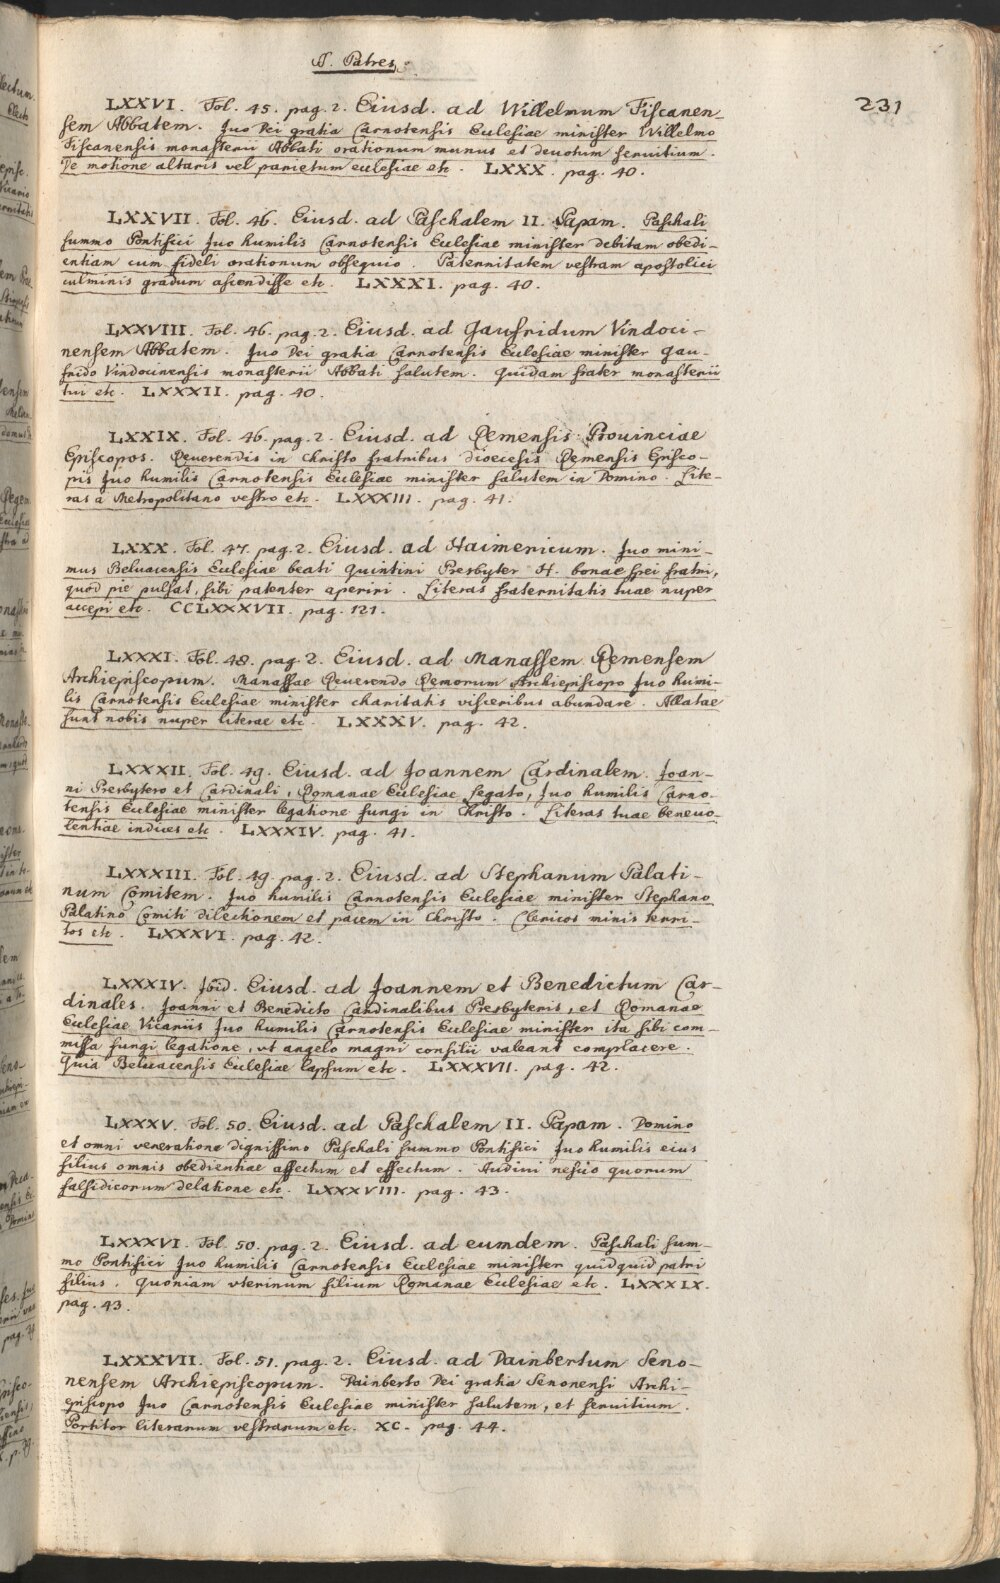 S. Patres.
231
LXXVI. Fol. 45. pag. 2. Eiusd. ad Willelmum Fiscanen-
sem Abbatem. Juo Dei gratia Carnotensis Eclesiae minister Willelmo
Fiscanensis monasterii Abbati orationum munus et deuotum seruitium.
De motione altaris vel parietum eclesiae etc. LXXX. pag. 40.
LXXVII. Fol. 46. Eiusd. ad Paschalem II. Papam. Paschali
summo Pontifici Juo humilis Carnotensis Eclesiae minister debitam obedi-
entiam cum fideli orationum obsequio. Paternitatem vestram apostolici
culminis gradum ascendisse etc. LXXXI. pag. 40.
LXXVIII. Fol. 46. pag. 2. Eiusd. ad Gaufridum Vindoci-
nensem Abbatem. Juo Dei gratia Carnotensis Eclesiae minister Gau-
frido Vindocinensis monasterii Abbati salutem. Quidam frater monasterii
tui etc. LXXXII. pag. 40.
LXXIX. Fol. 46. pag. 2. Eiusd. ad Remensis Prouinciae
Episcopos. Reuerendis in Christo fratribus dioecesis Remensis Episco-
pis Juo humilis Carnotensis Eclesiae minister salutem in Domino. Lite-
ras a Metropolitano vestro etc. LXXXIII. pag. 41.
LXXX. Fol. 47. pag. 2. Eiusd. ad Haimericum. Juo mini-
mus Beluacensis Eclesiae beati Quintini Presbyter H. bonae spei fratri,
quod pie pulsat, sibi patenter aperiri. Literas fraternitatis tuae nuper
accepi etc. CCLXXXVII. pag. 121.
LXXXI. Fol. 48. pag. 2. Eiusd. ad Manassem Remensem
Archiepiscopum. Manassae Reuerendo Remorum Archiepiscopo Juo humi-
lis Carnotensis Eclesiae minister charitatis visceribus abundare. Allatae
sunt nobis nuper literae etc. LXXXV. pag. 42.
LXXXII. Fol. 49. Eiusd. ad Joannem Cardinalem. Joan-
ni Presbytero et Cardinali, Romanae Eclesiae Legato, Juo humilis Carno-
tensis Eclesiae minister legatione fungi in Christo. Literas tuae beneuo-
lentiae indices etc. LXXXIV. pag. 41.
LXXXIII. Fol. 49. pag. 2. Eiusd. ad Stephanum Palati-
num Comitem. Juo humilis Carnotensis Eclesiae minister Stephano
Palatino Comiti dilectionem et pacem in Christo. Clericos minis terri-
tos etc. LXXXVI. pag. 42.
LXXXIV. Ibid. Eiusd. ad Joannem et Benedictum Car-
dinales. Joanni et Benedicto Cardinalibus Presbyteris, et Romanae
Eclesiae Vicariis Juo humilis Carnotensis Eclesiae minister ita sibi com-
missa fungi legatione, vt angelo magni consilii valeant complacere.
Quia Beluacensis Eclesiae lapsum etc. LXXXVII. pag. 42.
LXXXV. Fol. 50. Eiusd. ad Paschalem II. Papam. Domino
et omni veneratione dignissimo Paschali summo Pontifici Juo humilis eius
filius omnis obedientiae affectum et effectum. Audiui nescio quorum
falsidicorum delatione etc. LXXXVIII. pag. 43.
LXXXVI. Fol. 50. pag. 2. Eiusd. ad eumdem. Paschali sum-
mo Pontifici Juo humilis Carnotensis Eclesiae minister quidquid patri
filius. Quoniam vterinum filium Romanae Eclesiae etc. LXXXIX.
pag. 43.
LXXXVII. Fol. 51. pag. 2. Eiusd. ad Dainbertum Seno-
nensem Archiepiscopum. Dainberto Dei gratia Senonensi Archi-
episcopo Juo Carnotensis Eclesiae minister salutem, et seruitium.
Portitor literarum vestrarum etc. XC. pag. 44.